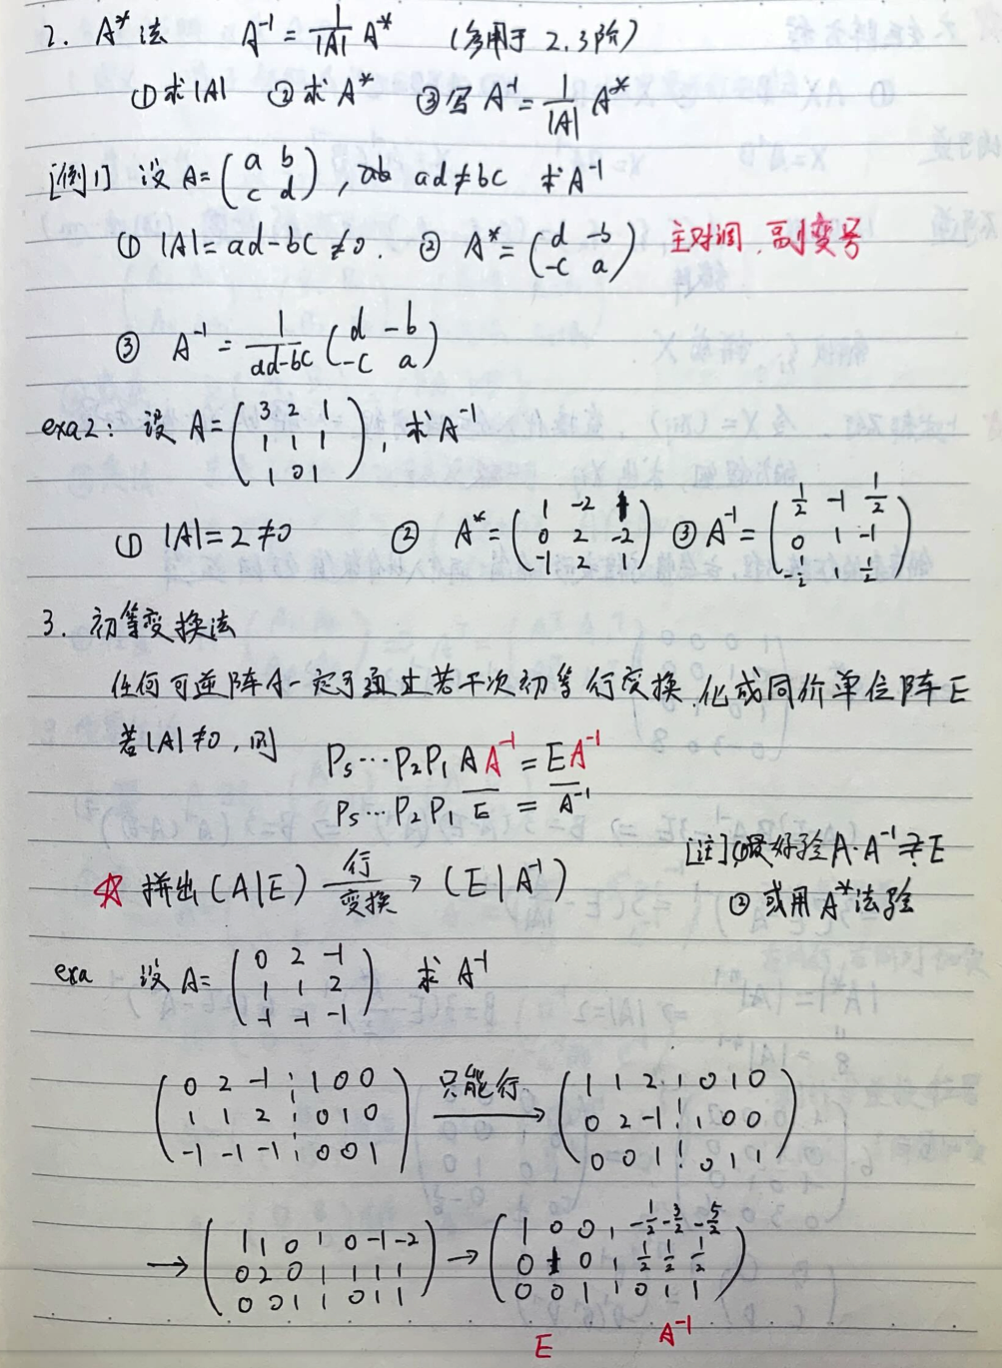 2. A* 法 A⁻¹ = 1/|A| A* (多用于 2.3阶)
① 求|A| ② 求A* ③ 写 A⁻¹ = 1/|A| A*
[例1] 设 A = (a b; c d), ab ad≠bc 求A⁻¹
① |A| = ad-bc ≠0. ② A* = (d -b; -c a) 主对调,副变号
③ A⁻¹ = 1/(ad-bc) (d -b; -c a)
exa2: 设 A = (3 2 1; 1 1 1; 1 0 1), 求A⁻¹
① |A| = 2 ≠0 ② A* = (1 -2 1; 0 2 -2; -1 2 1) ③ A⁻¹ = (1/2 -1 1/2; 0 1 -1; -1/2 1 1/2)
3. 初等变换法
任何可逆阵A一定可通过若干次初等行变换,化成同阶单位阵E
若|A|≠0, 则 Ps…P2P1AA⁻¹ = EA⁻¹
Ps…P2P1 E = A⁻¹
[注]①最好验A·A⁻¹ ?= E
☆ 拼出(A|E) 行变换→ (E|A⁻¹)
② 或用A*法验
exa 设A = (0 2 -1; 1 1 2; -1 -1 -1) 求 A⁻¹
(0 2 -1 ⋮ 1 0 0; 1 1 2 ⋮ 0 1 0; -1 -1 -1 ⋮ 0 0 1) 只能行→ (1 1 2 ⋮ 0 1 0; 0 2 -1 ⋮ 1 0 0; 0 0 1 ⋮ 0 1 1)
→ (1 1 0 | 0 -1 -2; 0 2 0 | 1 1 1; 0 0 1 | 0 1 1) → (1 0 0 | -1/2 -3/2 -5/2; 0 1 0 | 1/2 1/2 1/2; 0 0 1 | 0 1 1)
E A⁻¹